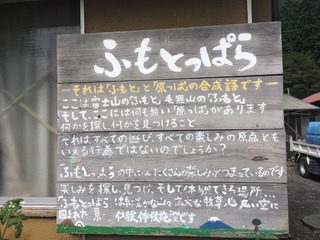 ふもとっぱら
ーそれは「ふもと」と「原っぱ」の合成語ですー
ここは富士山の「ふもと」毛無山の「ふもと」
そして、ここには何も無い「原っぱ」があります
何かを探し、何かを見つけること
それはすべての遊び、すべての楽しみの原点とも
いえる行為ではないのでしょうか?
ふもとっぱらの中にはたくさんの楽しみがつまっているのです
楽しみを探し、見つけ、そして体験できる場所…
ふもとっぱらは緑豊かな山々、広大な牧草地、広い空に
囲まれた 体験施設です